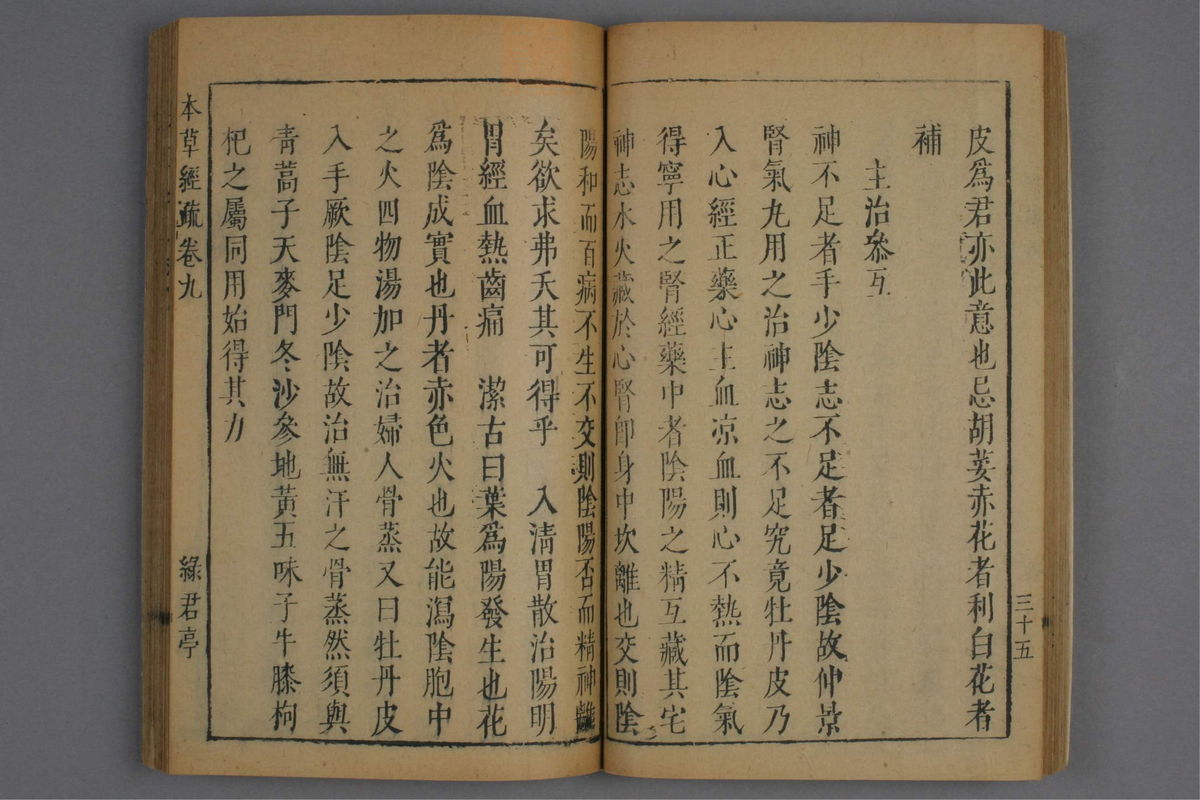 三十五
皮爲君亦此意也忌胡荽赤花者利白花者
補
主治參互
神不足者手少陰志不足者足少陰故仲景
腎氣丸用之治神志之不足究竟牡丹皮乃
入心經正藥心主血凉血則心不熱而陰氣
得寧用之腎經藥中者陰陽之精互藏其宅
神志水火藏於心腎卽身中坎離也交則陰
陽和而百病不生不交則陰陽否而精神離
矣欲求弗夭其可得乎　入清胃散治陽明
胃經血熱齒痛　潔古曰葉爲陽發生也花
爲陰成實也丹者赤色火也故能瀉陰胞中
之火四物湯加之治婦人骨蒸又曰牡丹皮
入手厥陰足少陰故治無汗之骨蒸然須與
青蒿子天麥門冬沙參地黃五味子牛膝枸
杞之屬同用始得其力
本草經疏卷九　綠君亭